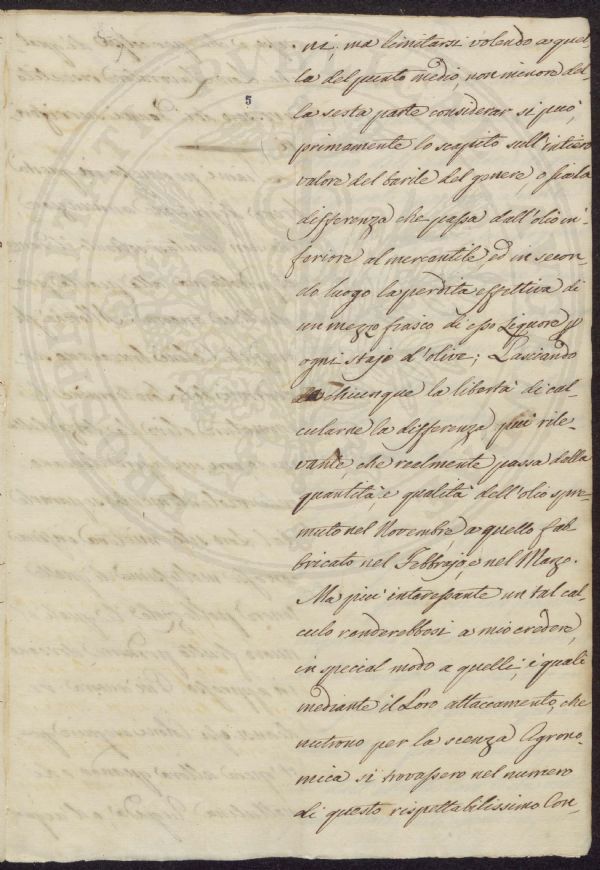 5
ni, ma limitarsi volendo a quel-
la del punto medio, non minore del
la sesta parte considerar si può,
primamente lo scapito sull'intiero
valore del barile del genere, o sia la
differenza che passa dall'olio in-
feriore al mercantile, ed in secon-
do luogo la perdita effettiva di
un mezzo fiasco di esso Liquore p
ogni stajo d'olive; Lasciando
a chiunque la libertà di cal-
cularne la differenza più rile-
vante, che realmente passa dalla
quantità, e qualità dell'olio spre-
muto nel Novembre a quello fab
bricato nel Febbrajo, e nel Marzo.
Ma più interessante un tal cal
culo renderebbesi a mio credere,
in special modo a quelli, i quali
mediante il Loro attaccamento, che
nutrono per la scenza Agrono-
mica si trovassero nel numero
di questo rispettabilissimo Con-